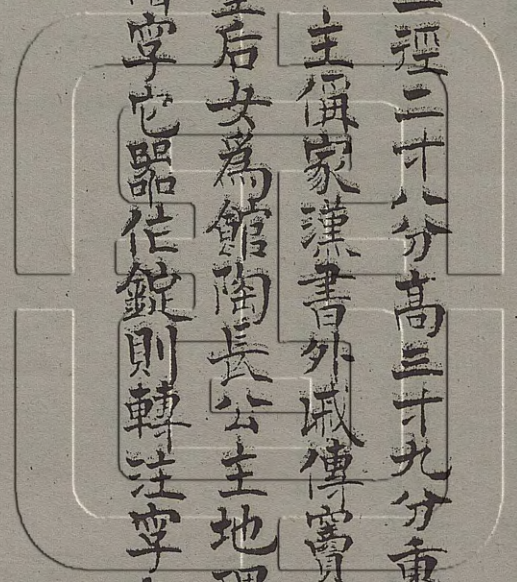 徑二寸八分高三寸九分重
主偁家漢書外戚傳竇
皇后女為館陶長公主地
字它器作錠則轉注字